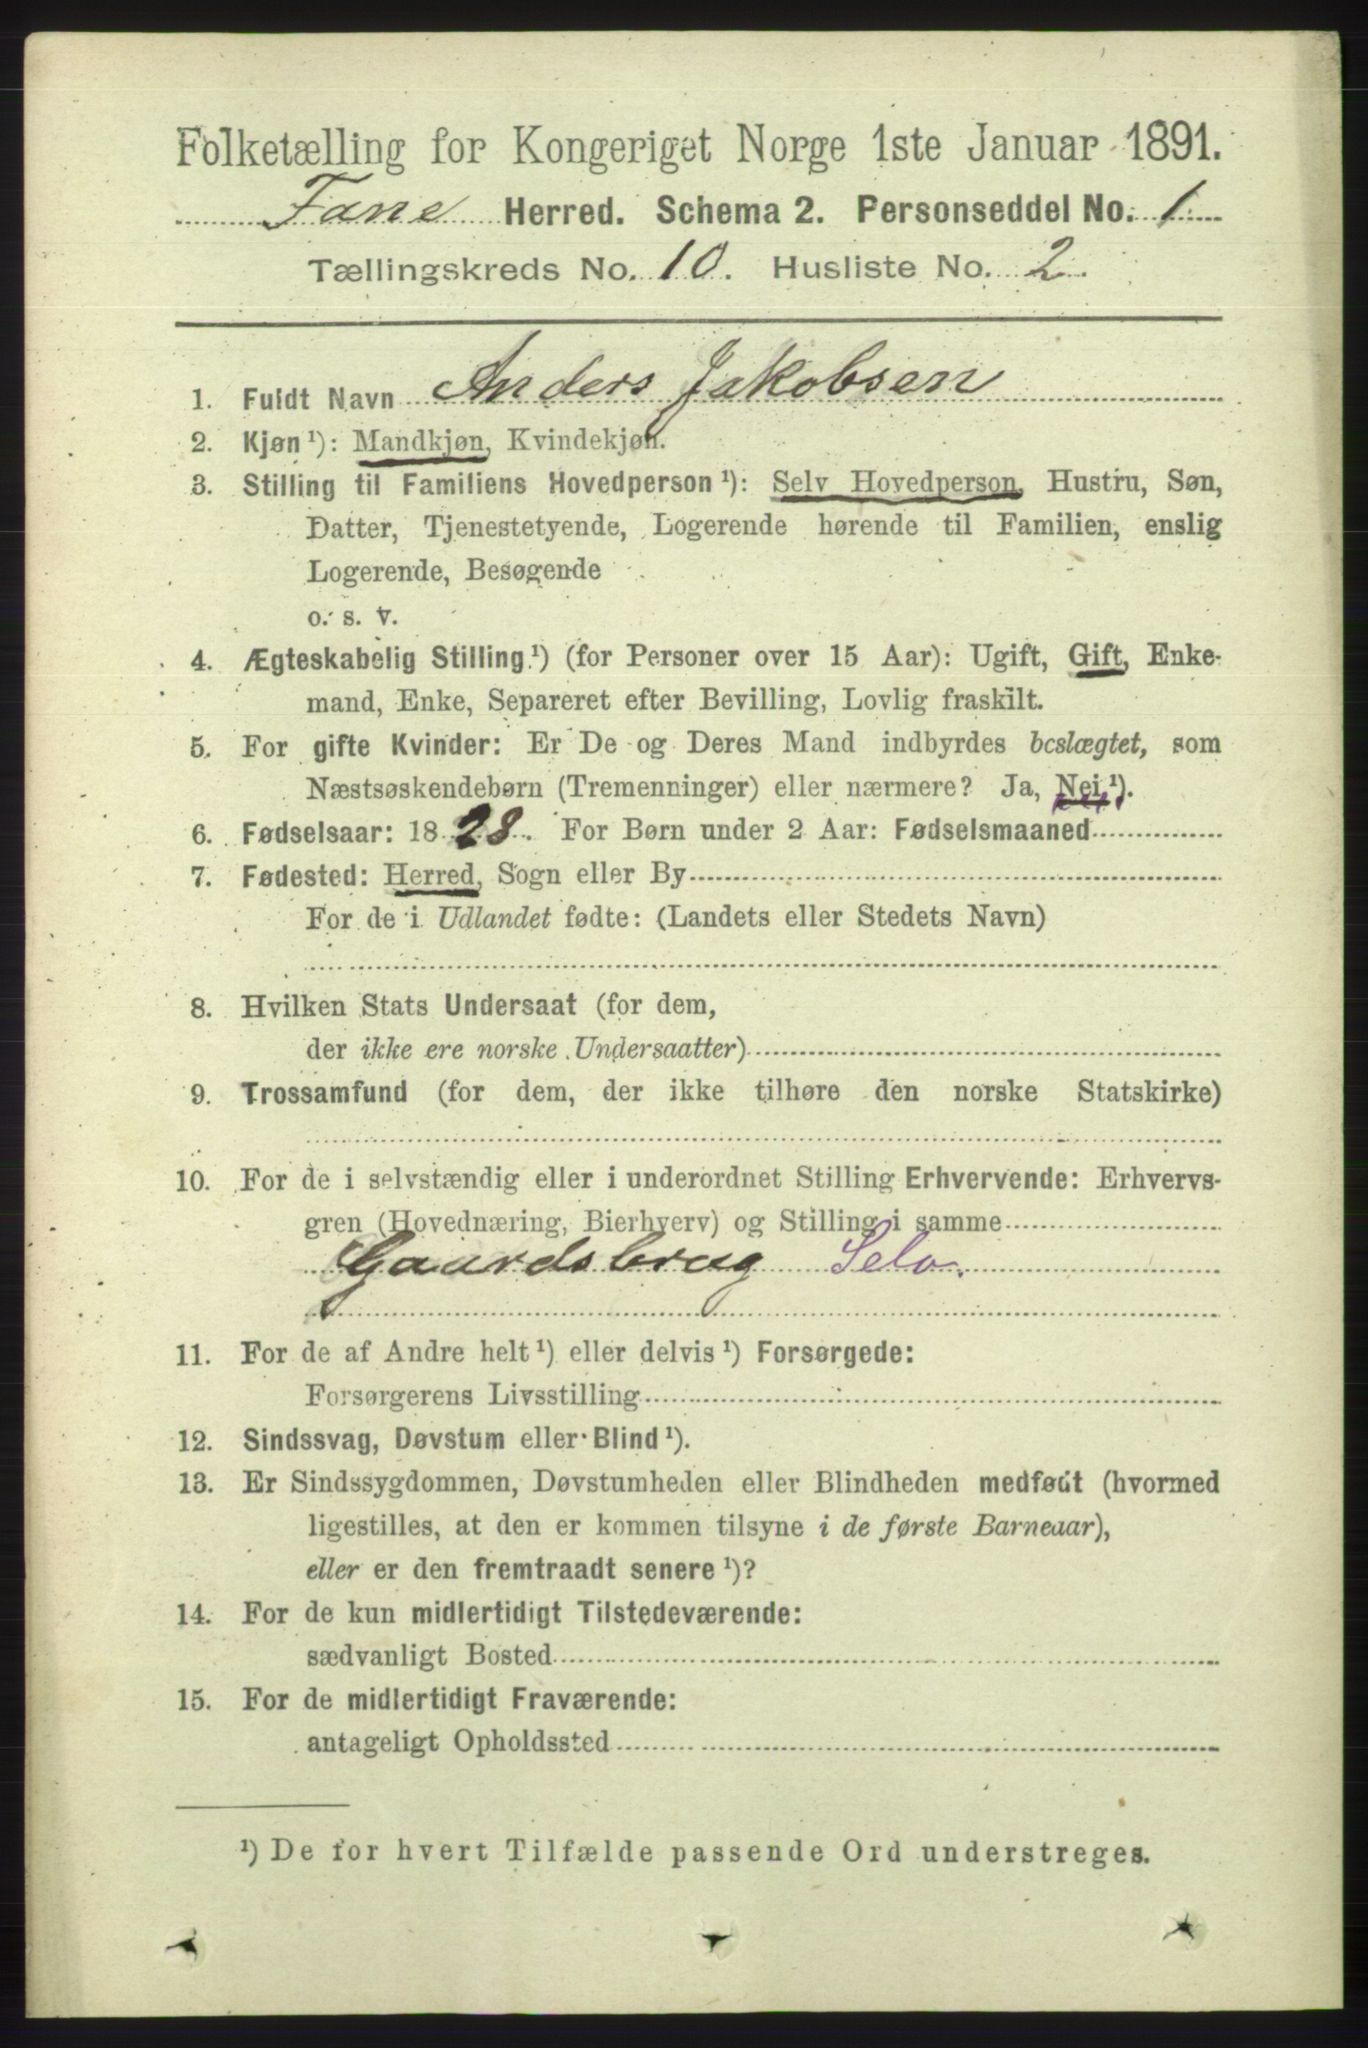 Folketælling for Kongeriget Norge 1ste Januar 1891.
Fane Herred. Schema 2. Personseddel No. 1
Tællingskreds No. 10. Husliste No. 2.
1. Fuldt Navn Anders Jakobsen
2. Kjøn¹): Mandkjøn, Kvindekjøn.
3. Stilling til Familiens Hovedperson¹): Selv Hovedperson, Hustru, Søn,
Datter, Tjenestetyende, Logerende hørende til Familien, enslig
Logerende, Besøgende
o. s. v.
4. Ægteskabelig Stilling¹) (for Personer over 15 Aar): Ugift, Gift, Enke-
mand, Enke, Separeret efter Bevilling, Lovlig fraskilt.
5. For gifte Kvinder: Er De og Deres Mand indbyrdes beslægtet, som
Næstsøskendebørn (Tremenninger) eller nærmere? Ja, Nei¹).
6. Fødselsaar: 1828. For Børn under 2 Aar: Fødselsmaaned
7. Fødested: Herred, Sogn eller By
For de i Udlandet fødte: (Landets eller Stedets Navn)
8. Hvilken Stats Undersaat (for dem,
der ikke ere norske Undersaatter)
9. Trossamfund (for dem, der ikke tilhøre den norske Statskirke)
10. For de i selvstændig eller i underordnet Stilling Erhvervende: Erhvervs-
gren (Hovednæring, Bierhverv) og Stilling i samme
Gaardsbrug Selv.
11. For de af Andre helt¹) eller delvis¹) Forsørgede:
Forsørgerens Livsstilling
12. Sindssvag, Døvstum eller Blind¹).
13. Er Sindssygdommen, Døvstumheden eller Blindheden medfødt (hvormed
ligestilles, at den er kommen tilsyne i de første Barneaar),
eller er den fremtraadt senere¹)?
14. For de kun midlertidigt Tilstedeværende:
sædvanligt Bosted
15. For de midlertidigt Fraværende:
antageligt Opholdssted
¹) De for hvert Tilfælde passende Ord understreges.